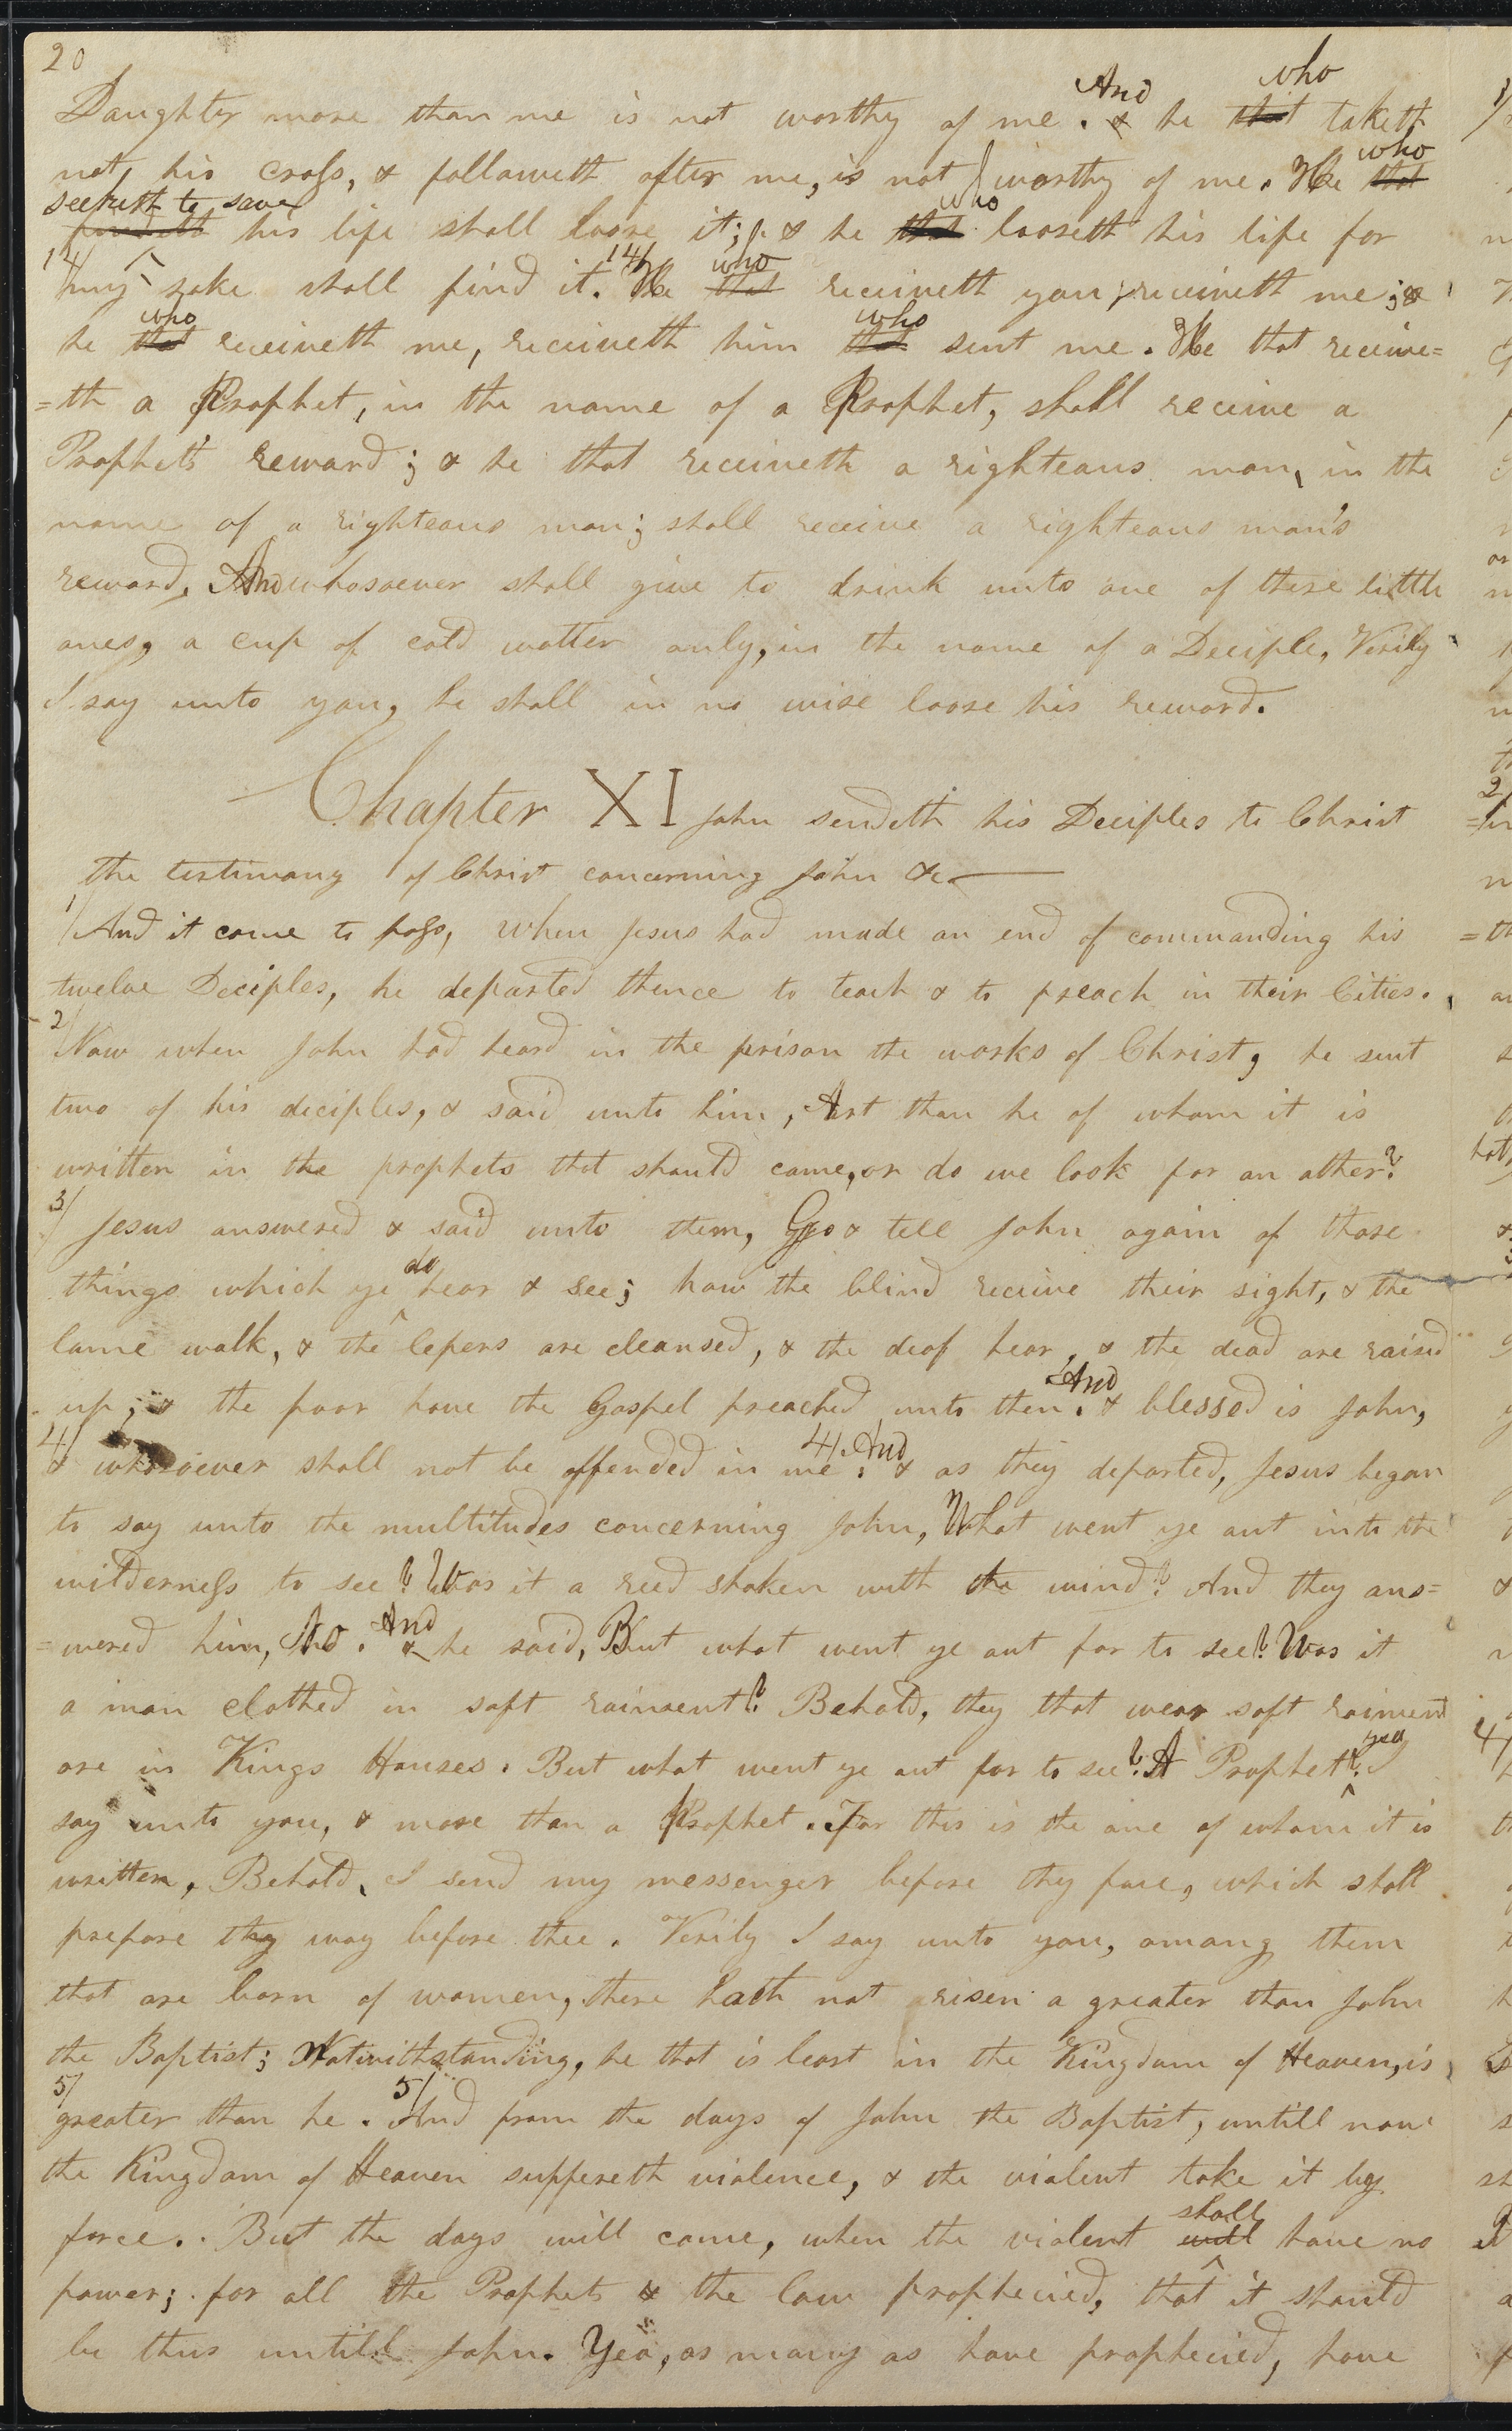 20
And who
Daughter more than me is not worthy of me. & he that taketh
not his cross, & followeth after me, is not worthy of me. He that who
seeketh to save
findeth his life shall loose it; & he that who looseth his life for
14/ my sake shall find it. 14/ He that who receiveth you, receiveth me; &
he that who receiveth me, receiveth him that who sent me. He that receive=
=th a Prophet, in the name of a Prophet, shall receive a
Prophets reward; & he that receiveth a righteous man, in the
name of a righteous man; shall receive a righteous man's
reward. And whosoever shall give to drink unto one of these little
ones, a cup of cold watter only, in the name of a Deciple, Verily
I say unto you, he shall in no wise loose his reward.
Chapter XI John sendeth his Deciples to Christ
the testimony of Christ concerning John &c
1/ And it come to pass, when Jesus had made an end of commanding his
twelve Deciples, he departed thence to teach & to preach in their Cities.
2/ Now when John had heard in the prison the works of Christ, he sent
two of his deciples, & said unto him, Art thou he of whom it is
written in the prophets that should come, or do we look for an other?
3/ Jesus answered & said unto them, Go & tell John again of those
things which ye do hear & see; how the blind receive their sight, & the
lame walk, & the lepers are cleansed, & the deaf hear, & the dead are raised
up; & the poor have the Gospel preached unto them. And & blessed is John,
4/ & whosoever shall not be offended in me. 4/ And & as they departed, Jesus began
to say unto the multitudes concerning John, What went ye out into the
wilderness to see? Was it a reed shaken with the wind? And they ans=
=wered him, No. And & he said, But what went ye out for to see? Was it
a man clothed in soft raiment? Behold, they that wear soft raiment
are in Kings Houses. But what went ye out for to see? A Prophet? yea I
say unto you, & more than a Prophet. For this is the one of whom it is
written, Behold, I send my messenger before thy face, which shall
prepare thy way before thee. Verily I say unto you, among them
that are born of women, there hath not risen a greater than John
the Baptist; Notwithstanding, he that is least in the Kingdom of Heaven, is
5/ greater than he. 5/ And from the days of John the Baptist, untill now
the Kingdom of Heaven suffereth violence, & the violent take it by
force. But the days will come, when the violent will shall have no
power; for all the Prophets & the law prophecied, that it should
be thus untill John. Yea, as many as have prophecied, have